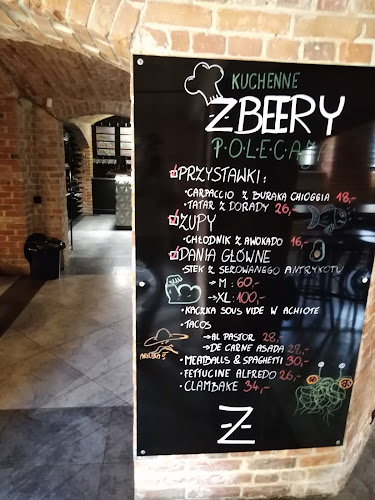 KUCHENNE
ZBEERY
POLECA
PRZYSTAWKI:
• CARPACCIO Z BURAKA CHIOGGIA 18,-
• TATAR Z DORADY 26,-
ZUPY
• CHŁODNIK Z AWOKADO 16,-
DANIA GŁÓWNE
• STEK Z SEZOWANEGO ANTRYKOTU
→ M: 60,-
→ XL: 100,-
• KACZKA SOUS VIDE W ACHIOTE
• TACOS
→ AL PASTOR 28,-
→ DE CARNE ASADA 28,-
• MEATBALLS & SPAGHETTI 30,-
• FETTUCINE ALFREDO 26,-
• CLAMBAKE 34,-
Z